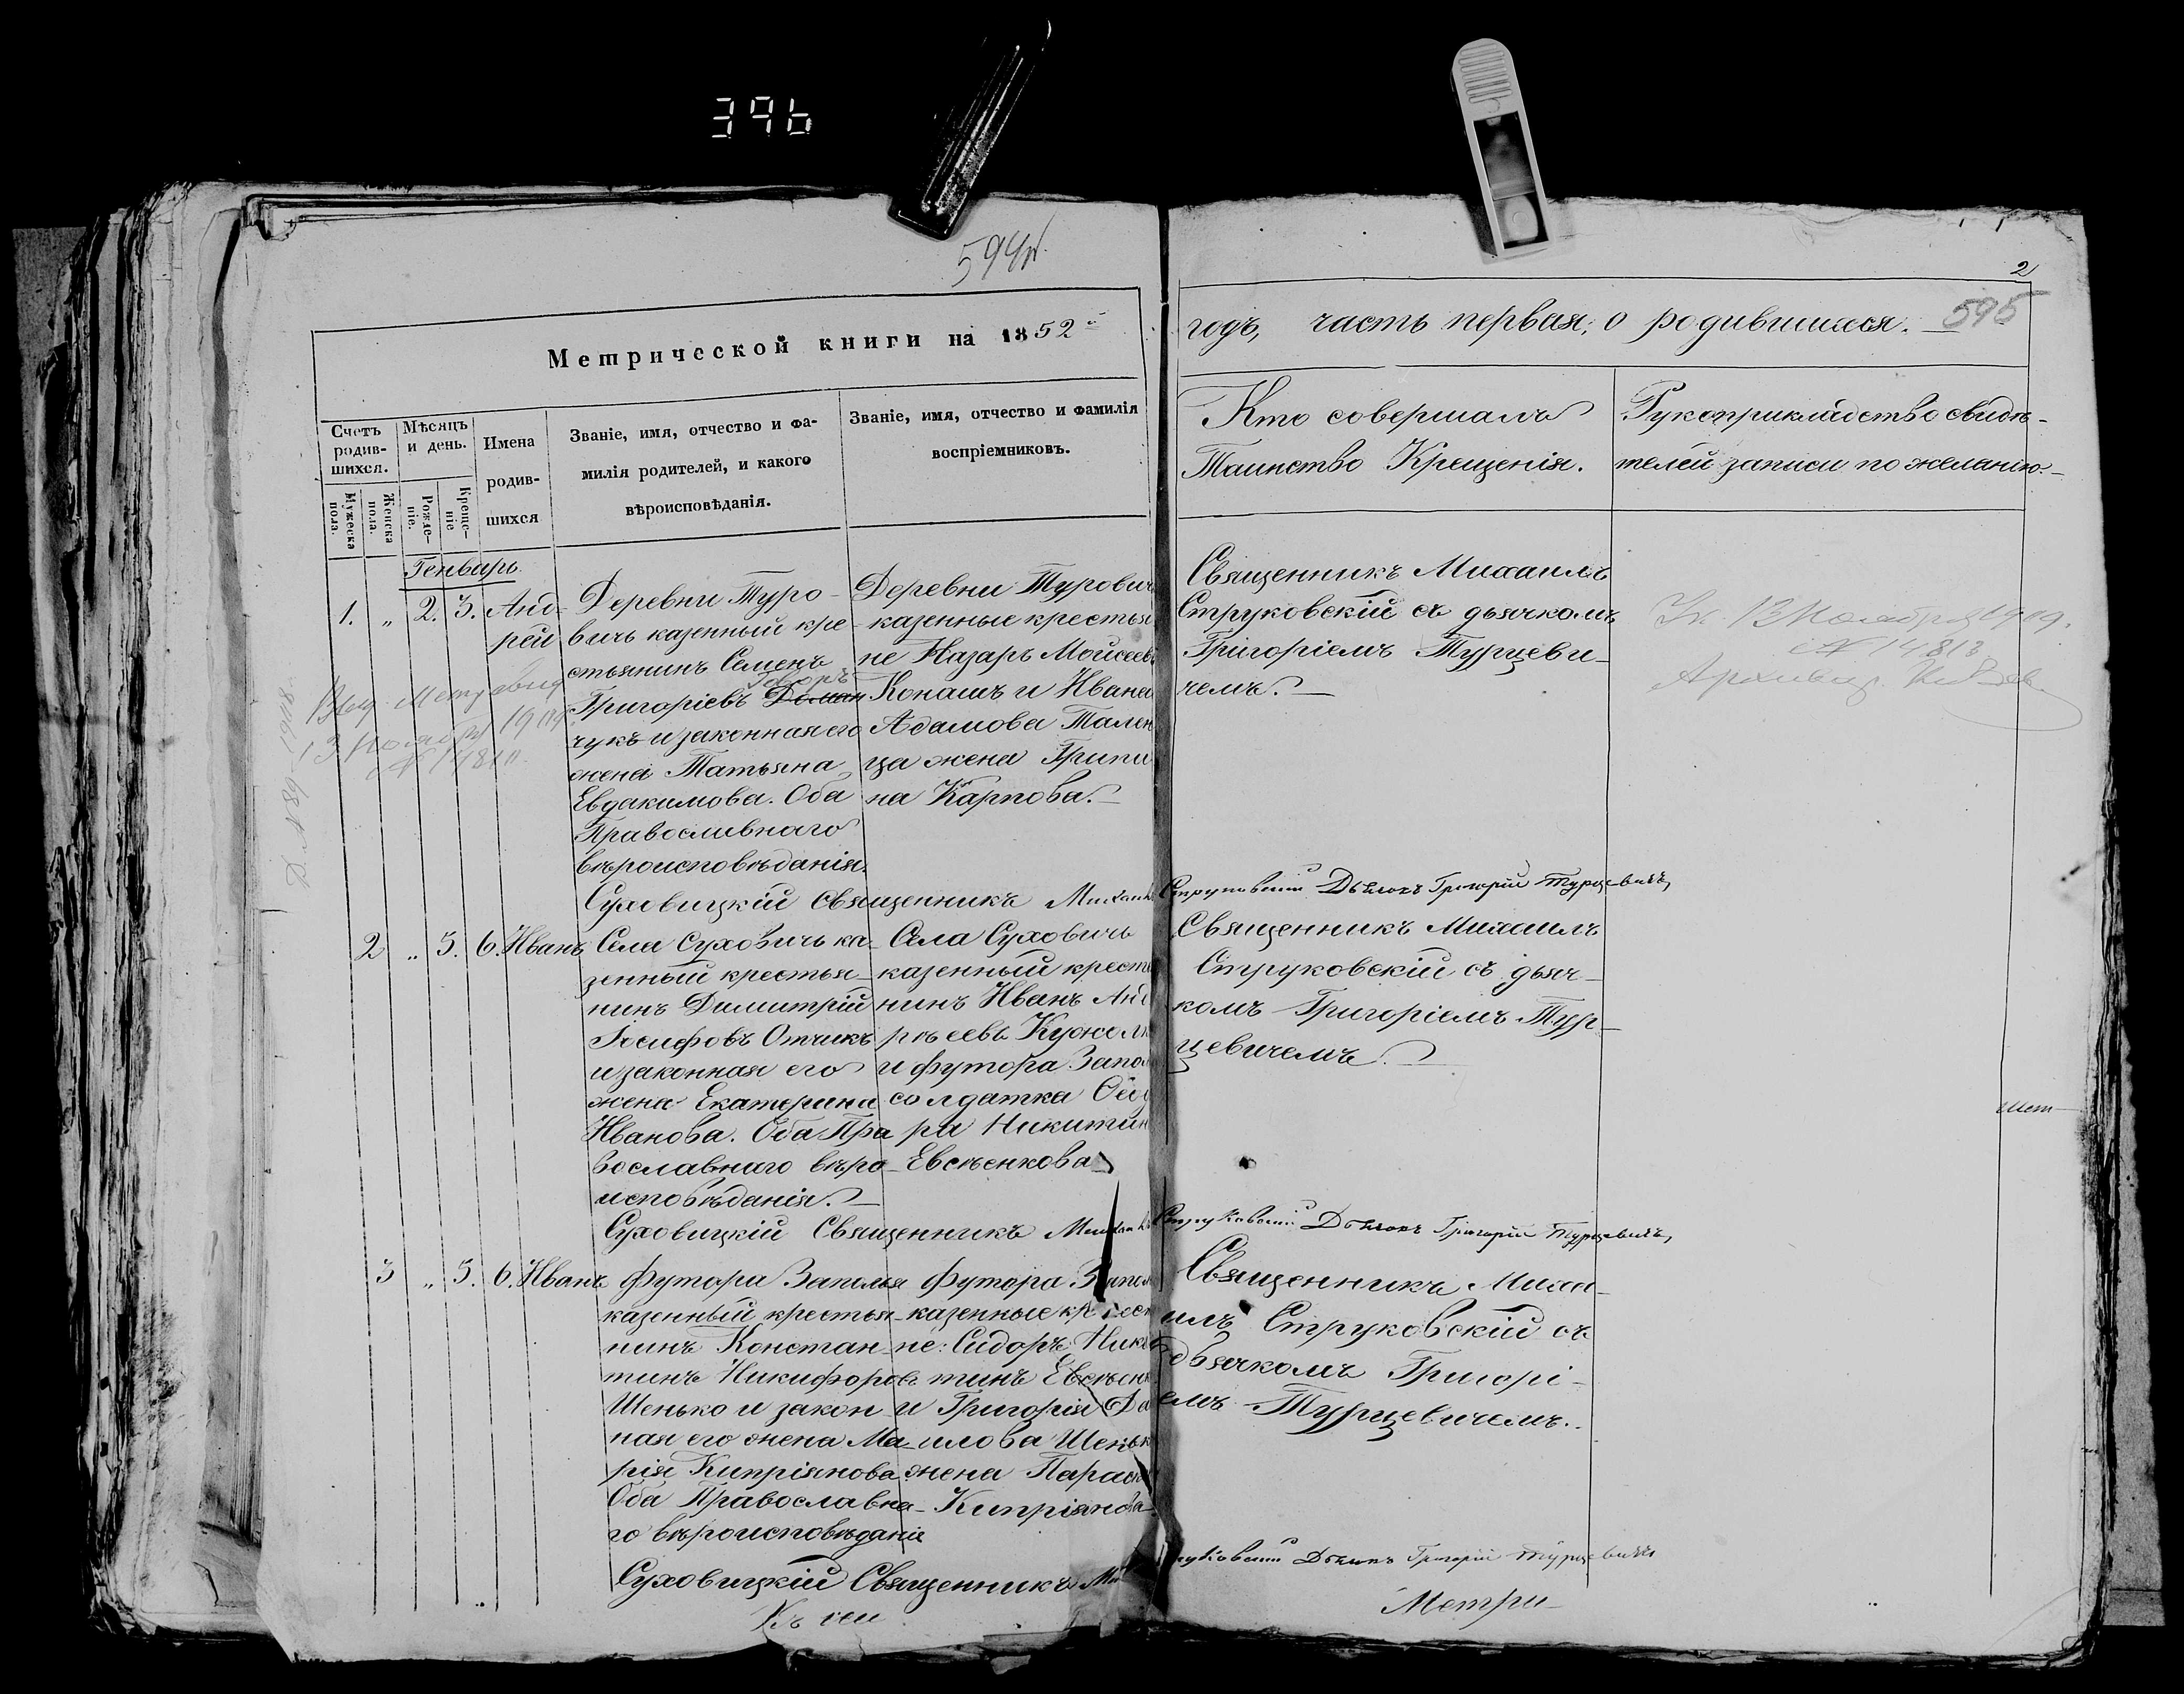 396
594 об.
2
595
Метрической книги на 1852й
годъ, часть первая; о родившихся.
Счетъ родив-
шихся.
Мѣсяцъ
и день.
Имена
родив-
шихся
Званіе, имя, отчество и фа-
милія родителей, и какого
вѣроисповѣданія.
Званіе, имя, отчество и фамилія
воспріемниковъ.
Кто совершалъ
Таинство Крещенія.
Рукоприкладство свидѣ-
телей записи по желанію.
Мужеска
пола.
Женска
пола.
Рожде-
ніе.
Креще-
ніе
Генварь
1. „ 2. 3. Анд-
рей
Деревни Туро-
вичь казенный кре-
стьянинъ Семенъ
Говоръ
Григоріевъ Доман
чукъ и законная его
жена Татьяна
Евдакимова. Оба
Православнаго
вѣроисповѣданія.
Деревни Турович
казенные крестья
не Назаръ Моисеев
Конашъ и Ивана
Адамова Тален
ца жена Грипи
на Карпова.
Священникъ Михаилъ
Струковскій съ дьячкомъ
Григоріемъ Турцеви-
чемъ.
13 Ноября 1909.
№ 14813
13 Ноября 1909
№
Суховицкій Священникъ Михаилъ Струковскій Дьячокъ Григорій Турцевичъ
2 „ 5. 6. Иванъ
Села Суховичь ка-
зенный крестья-
нинъ Димитрій
Іосифовъ Отчикъ
и законная его
жена Екатерина
Иванова. Оба Пра
вославнаго вѣро-
исповѣданія.
Села Суховичь
казенный крестья
нинъ Иванъ Анд
рѣевъ Кужел
и футора Запол
солдатка Ѳео
ра Никитин
Евсѣенкова
Священникъ Михаилъ
Струковскій съ дьяч-
комъ Григоріемъ Тур-
цевичемъ.
Суховицкій Священникъ Михаилъ Струковскій Дьячокъ Григорій Турцевичъ
3 „ 5. 6. Иванъ
футора Заполья
казенный крестья-
нинъ Констан-
тинъ Никифоровъ
Шенько и закон-
ная его жена Ма-
рія Кипріянова
Оба Православна-
го вѣроисповѣданіе
футора Запол
казенные крест
не: Сидоръ Ники
тинъ Евсѣен
и Григорія Да
илова Шеньк
жена Параск
Кипріянова
Священникъ Миха-
илъ Струковскій съ
дьячкомъ Григорі-
емъ Турцевичемъ.
Суховицкій Священникъ Ми руковскій Дьячокъ Григорій Турцевичъ
Къ сей
Метри-